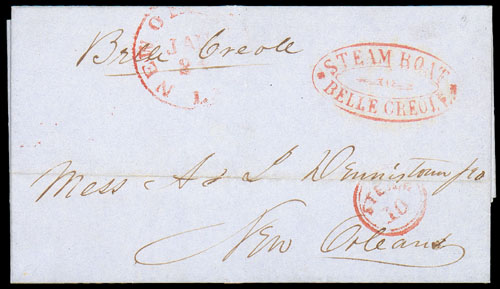 Belle Creole
NEW O
JAN
2
L
STEAM BOAT
BELLE CREOLE
Mess A & J Dennistoun & Co
STEAM
10
New Orleans